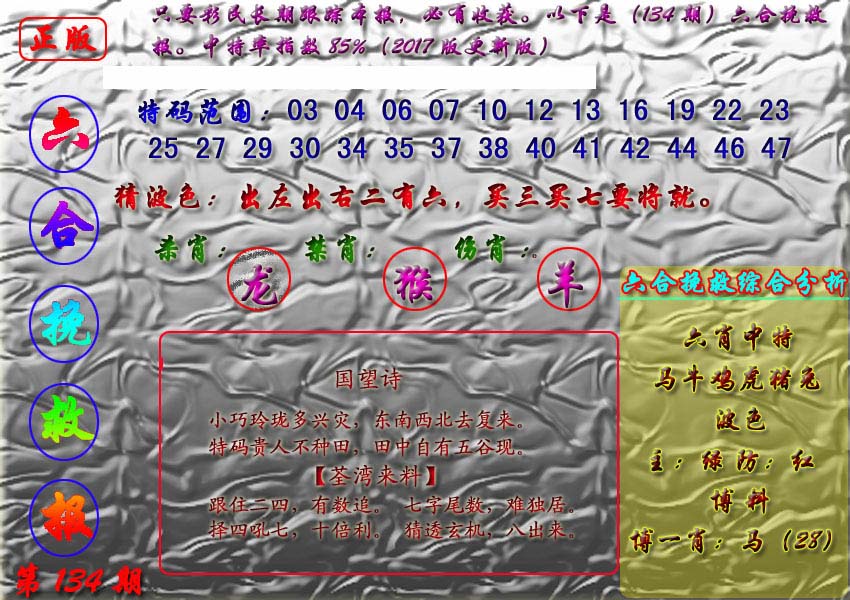 正版
只要彩民长期跟踪本报，必有收获。以下是（134期）六合挽救
报。中特率指数85%（2017版更新版）
六合挽救报
第134期
特码范围：03 04 06 07 10 12 13 16 19 22 23
25 27 29 30 34 35 37 38 40 41 42 44 46 47
猜波色：出左出右二有六，买三买七要将就。
杀肖：龙 禁肖：猴 伤肖：羊
国望诗
小巧玲珑多兴灾，东南西北去复来。
特码贵人不种田，田中自有五谷现。
【荃湾来料】
跟住二四，有数追。 七字尾数，难独居。
择四吼七，十倍利。 猜透玄机，八出来。
六合挽救综合分析
六肖中特
马牛鸡虎猪兔
波色
主：绿防：红
博料
博一肖：马（28）